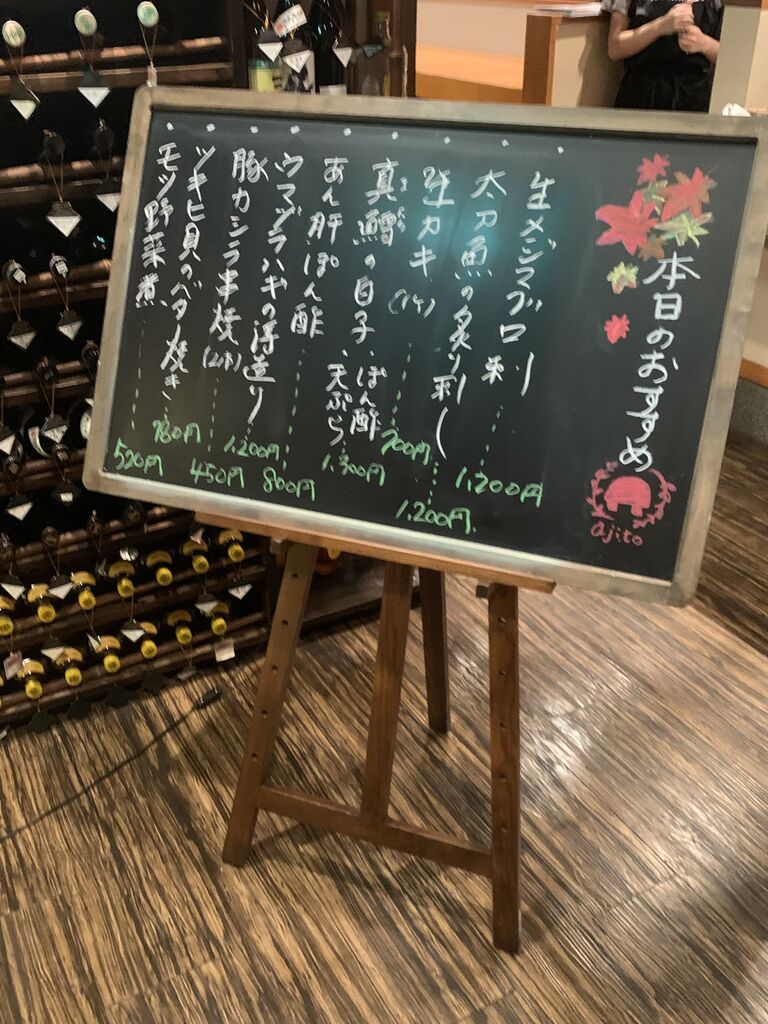 本日のおすすめ
ajito
生メジマグロ 刺 1,200円
太刀魚の炙り刺し 1,200円
生カキ(1ケ) 700円
真鱈の白子、ぽん酢 天ぷら 1,300円
まだら
あん肝ぽん酢 800円
ウマヅラハギの浮造り 1,200円
豚カシラ串焼(2本) 450円
ツキヒ貝のバター焼き 780円
モツ野菜煮 520円